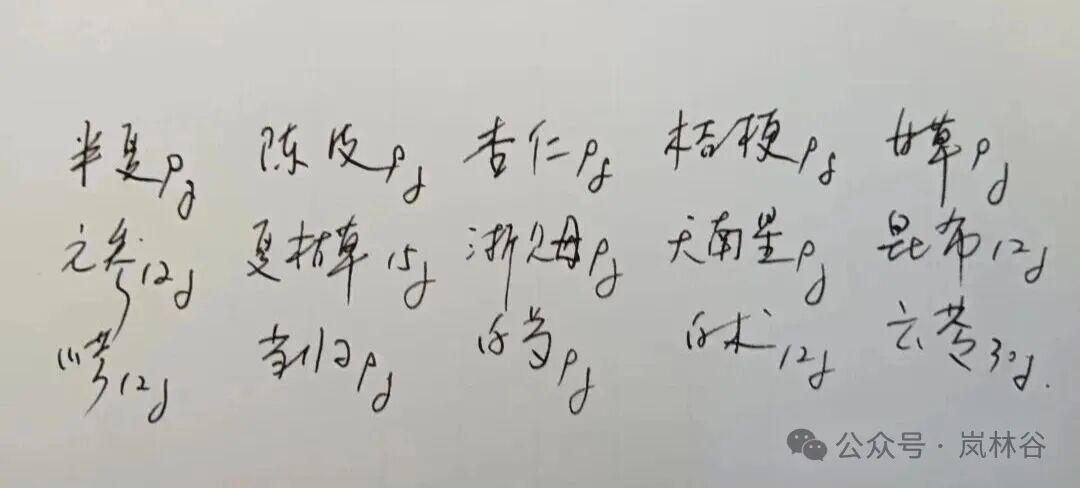 半夏9g 陈皮9g 杏仁9g 桔梗9g 甘草9g
元参12g 夏枯草15g 浙贝母9g 天南星9g 昆布12g
川芎12g 当归9g 白芍9g 白术12g 云苓30g.
公众号·岚林谷